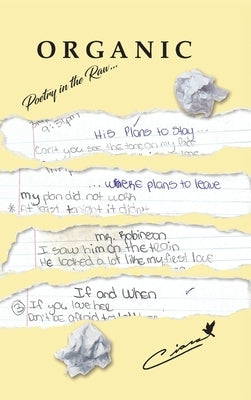 ORGANIC
Poetry in the Raw...
9:51pm
His Plans to Stay...
Can't you see the tone on my face
...Where plans to leave
my plan did not work
* At least tonight it didn't
Mr. Robinson
I saw him on the train
He looked a lot like my first love
If and When
③ If you love her
Don't be afraid to